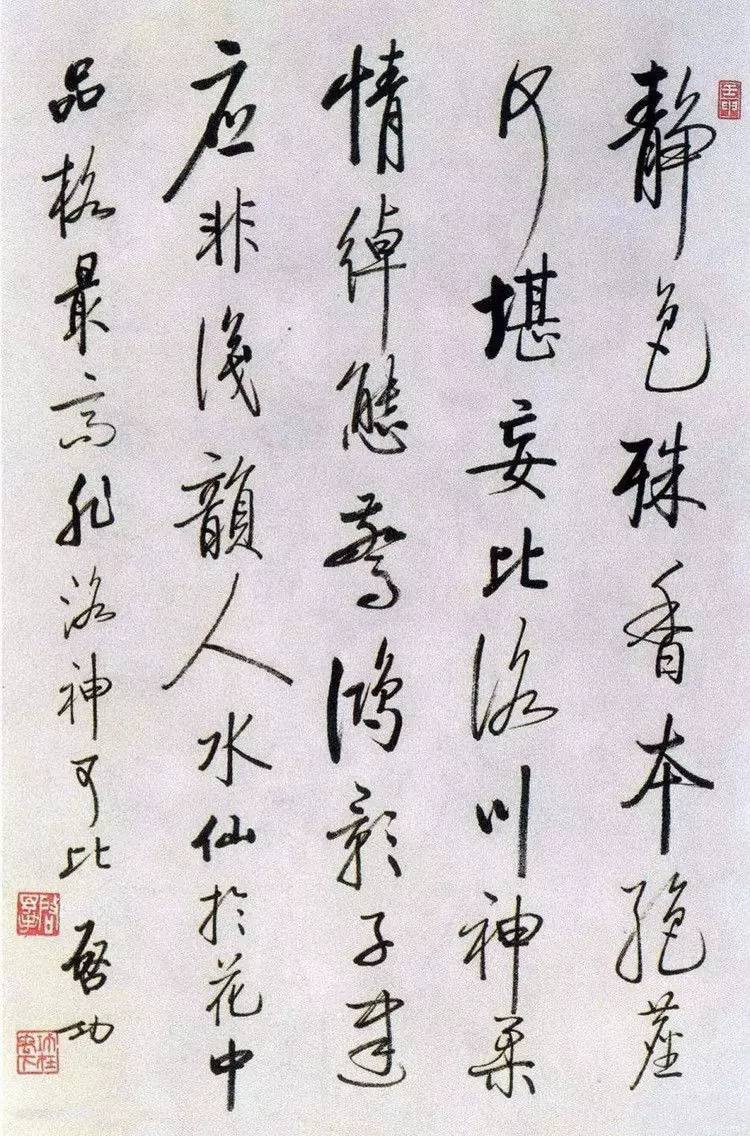 静色殊香本绝尘
何堪妄比洛川神柔
情绰态惊鸿影子建
应非浅韵人水仙於花中
品格最高非洛神可比
启功